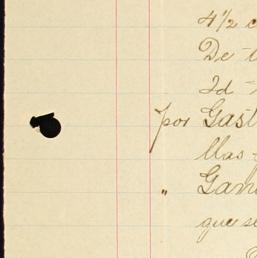 4½ c
De
Id
por Gast
llas
" Gan
que se